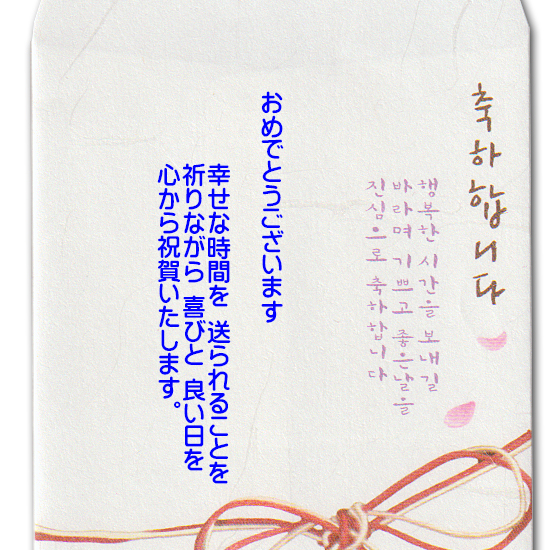 축하합니다
행복한 시간을 보내길
바라며 기쁘고 좋은날을
진심으로 축하합니다
おめでとうございます
幸せな時間を 送られることを
祈りながら 喜びと 良い日を
心から祝賀いたします。